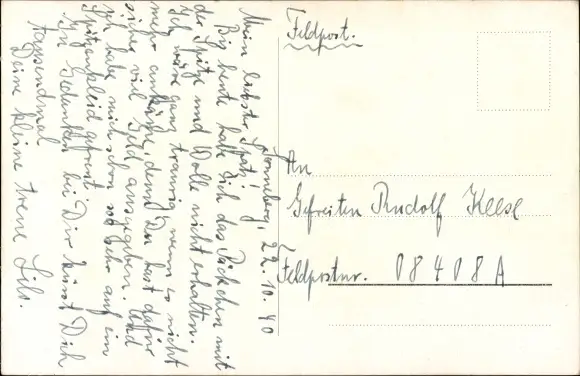 Sonneberg, 22.10.40
Mein liebster Spatz!
Bis heute habe ich das Päckchen mit
der Spitze und Wolle nicht erhalten.
Ich wäre ganz traurig wenn es nicht
mehr ankäme, denn Du hast dafür
sicher viel Geld ausgegeben. Und
ich habe mich schon so sehr auf ein
Spitzenkleid gefreut.
In Gedanken bei Dir küsst Dich
tausendmal
Deine kleine treue Lilo.
Feldpost.
An
Gefreiten Rudolf Keese
Feldpostnr. 08408A